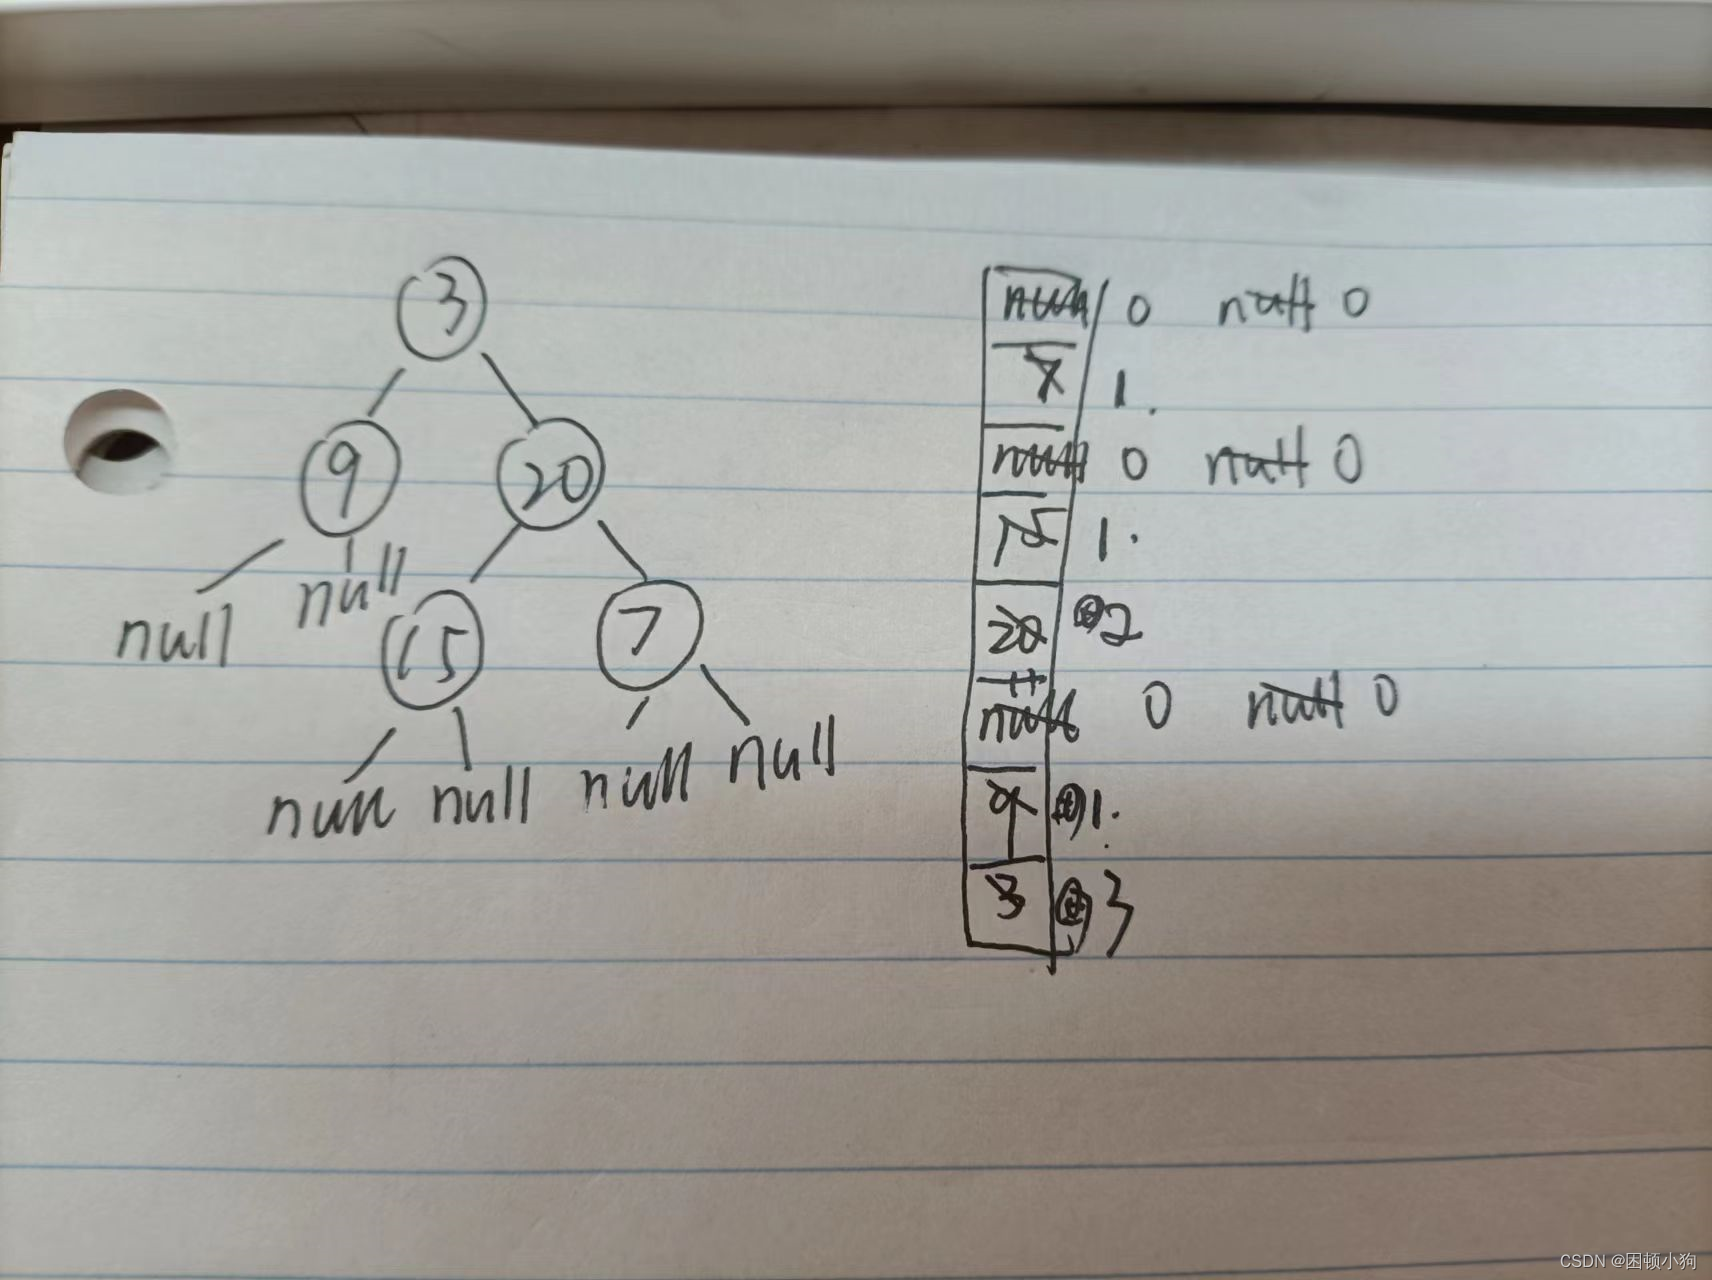 3
9 20
null null
15 7
null null null null
null 0 null 0
7 1.
null 0 null 0
15 1.
20 2
null 0 null 0
9 1.
3 3
CSDN @困顿小狗